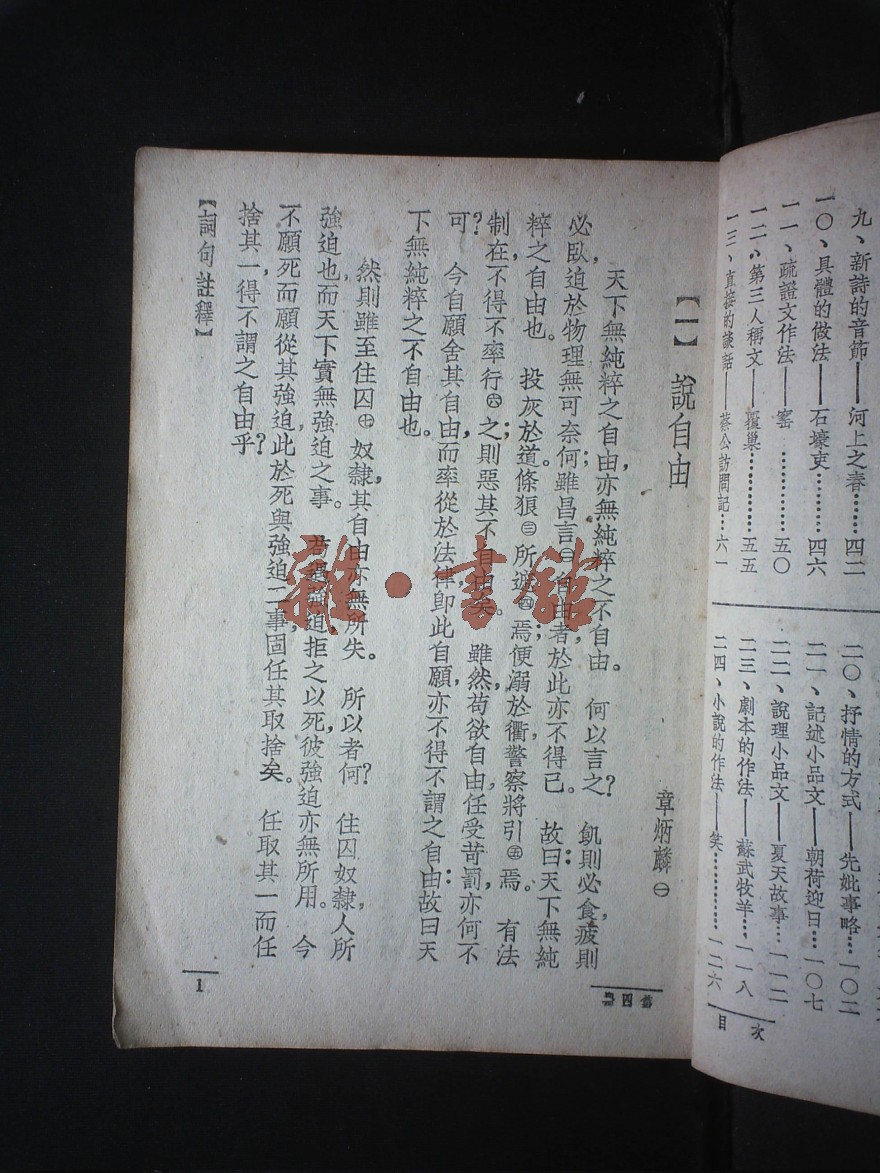 九、新詩的音節——河上之春……四二
一〇、具體的做法——石壕吏………四六
一一、疏證文作法——窰…………五〇
一二、第三人稱文——覆巢…………五五
一三、直接的談話——蔡公訪問記…六一
二〇、抒情的方式——先妣事略…一〇二
二一、記述小品文——朝荷迎日…一〇七
二二、說理小品文——夏天故事…一一二
二三、劇本的作法——蘇武牧羊…一一八
二四、小說的作法——笑…………一二六
目次
【一】 說自由
章炳麟㊀
天下無純粹之自由,亦無純粹之不自由。 何以言之? 飢則必食,疲則
必臥,迫於物理,無可奈何。雖昌言㊁自由者,於此亦不得已。 故曰:天下無純
粹之自由也。 投灰於道,條狼㊂所遮㊃焉;便溺於衢,警察將引㊄焉。 有法
制在,不得不率行㊅之;則惡其不自由矣。 雖然,苟欲自由,任受苛罰,亦何不
可? 今自願舍其自由,而率從於法律,即此自願,亦不得不謂之自由:故曰天
下無純粹之不自由也。
然則雖至住囚㊆奴隸,其自由亦無所失。 所以者何? 住囚奴隸,人所
強迫也,而天下實無強迫之事。 若遇強迫,拒之以死,彼強迫亦無所用。 今
不願死,而願從其強迫,此於死與強迫二事,固任其取捨矣。 任取其一,而任
捨其一,得不謂之自由乎?
【詞句註釋】
第四冊
1
雜·書館